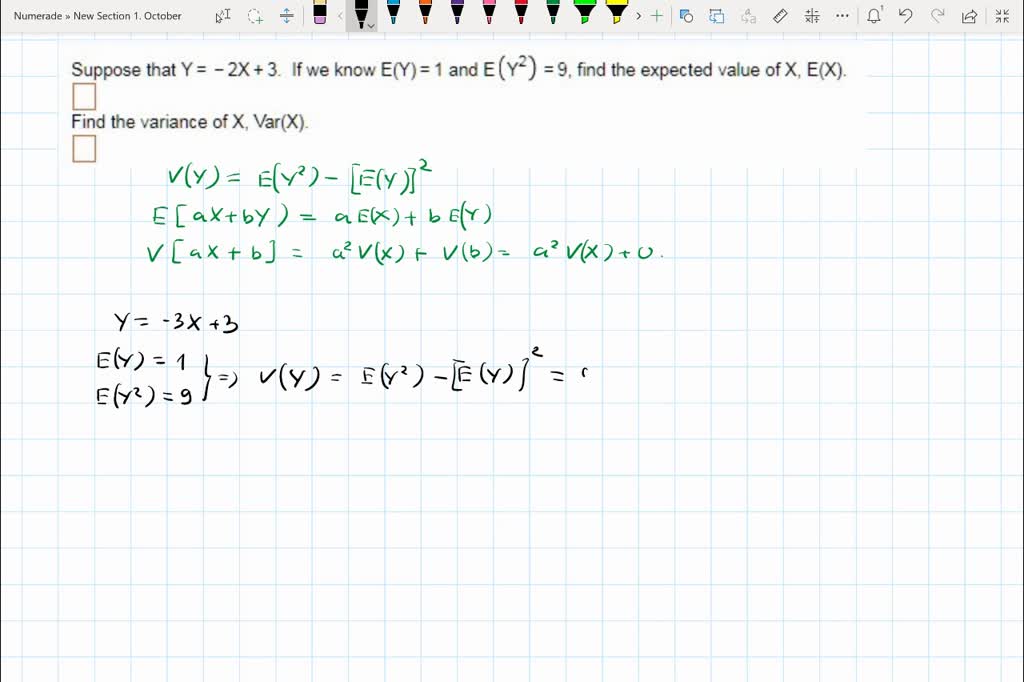 Numerade » New Section 1. October
Suppose that Y = − 2X + 3. If we know E(Y) = 1 and E(Y²) = 9, find the expected value of X, E(X).
Find the variance of X, Var(X).
V(Y) = E(Y²) − [E(Y)]²
E[aX+bY) = a E(X) + b E(Y)
V[aX + b] = a² V(X) + V(b) = a² V(X) + 0.
Y = -3X +3
E(Y) = 1
E(Y²) = 9
} => V(Y) = E(Y²) − [E(Y)]² =